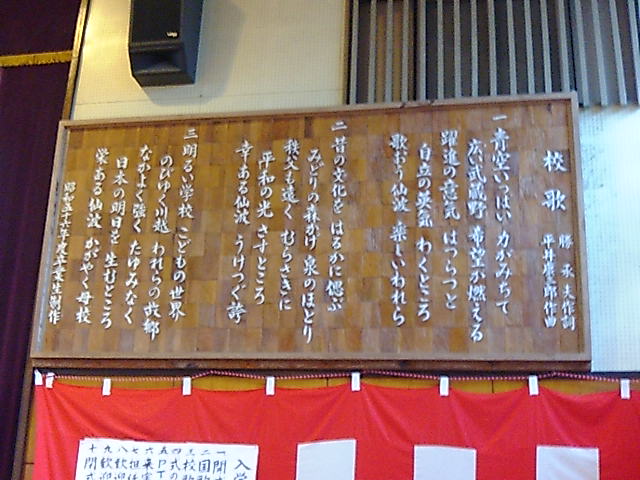 校歌
勝承夫作詞
平井康三郎作曲
一 青空いっぱい 力がみちて
広い武蔵野 希望が燃える
躍進の意気 はつらつと
自立の英気 わくところ
歌おう仙波 楽しいわれら
二 昔の文化を はるかに偲ぶ
みどりの森かげ 泉のほとり
秩父も遠く むらさきに
平和の光 さすところ
幸ある仙波 うけつぐ誇
三 明るい学校 こどもの世界
のびゆく川越 われらの故郷
なかよく強く たゆみなく
日本の明日を 生むところ
栄ある仙波 かがやく母校
昭和五十年度卒業生制作
入学
一 開式
二 国歌
三 校歌
四 式の
五 PT
六 来宝
七 担任
八 歓迎
九 歓迎
十 閉式